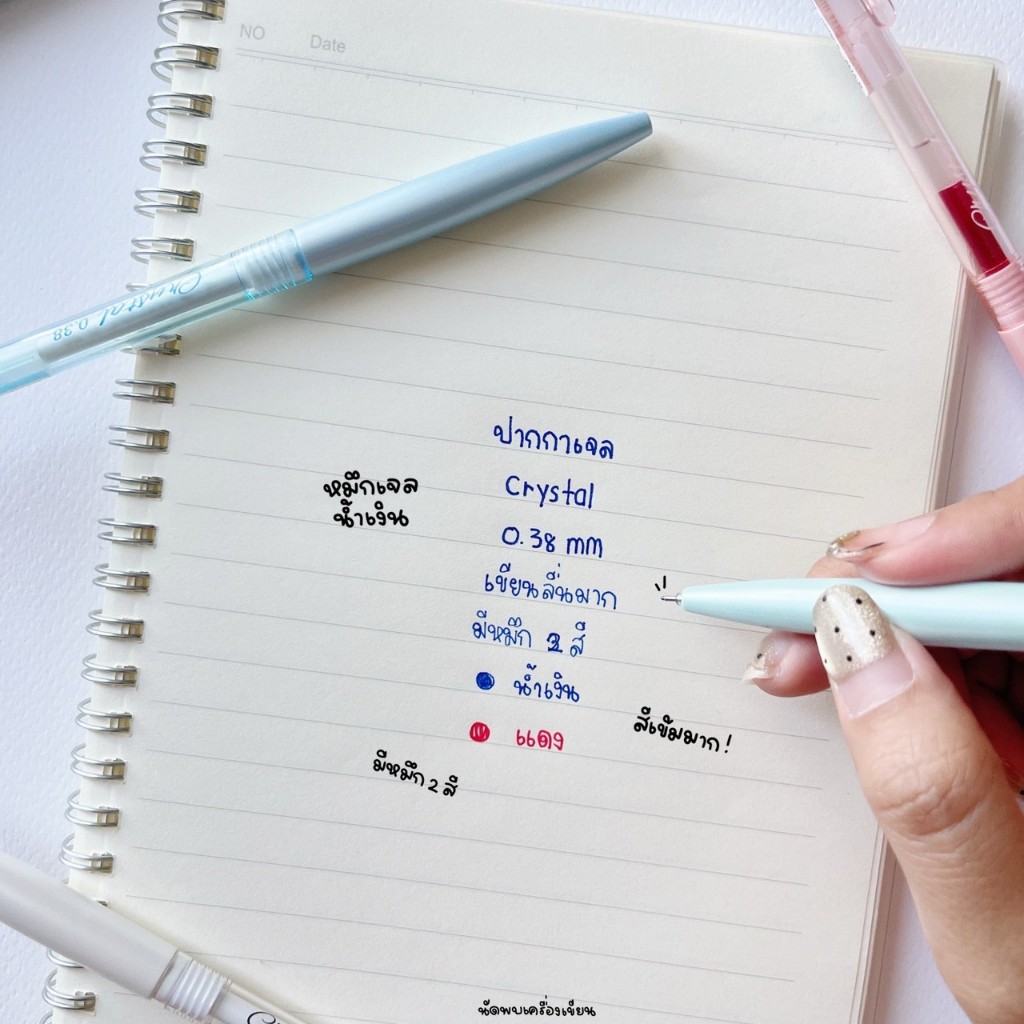 NO Date
Crystal 0.38
ปากกาเจล
Crystal
0.38 mm
เขียนลื่นมาก
มีหมึก 2 สี
น้ำเงิน
แดง
หมึกเจล
น้ำเงิน
สีเข้มมาก!
มีหมึก 2 สี
นัดพบเครื่องเขียน